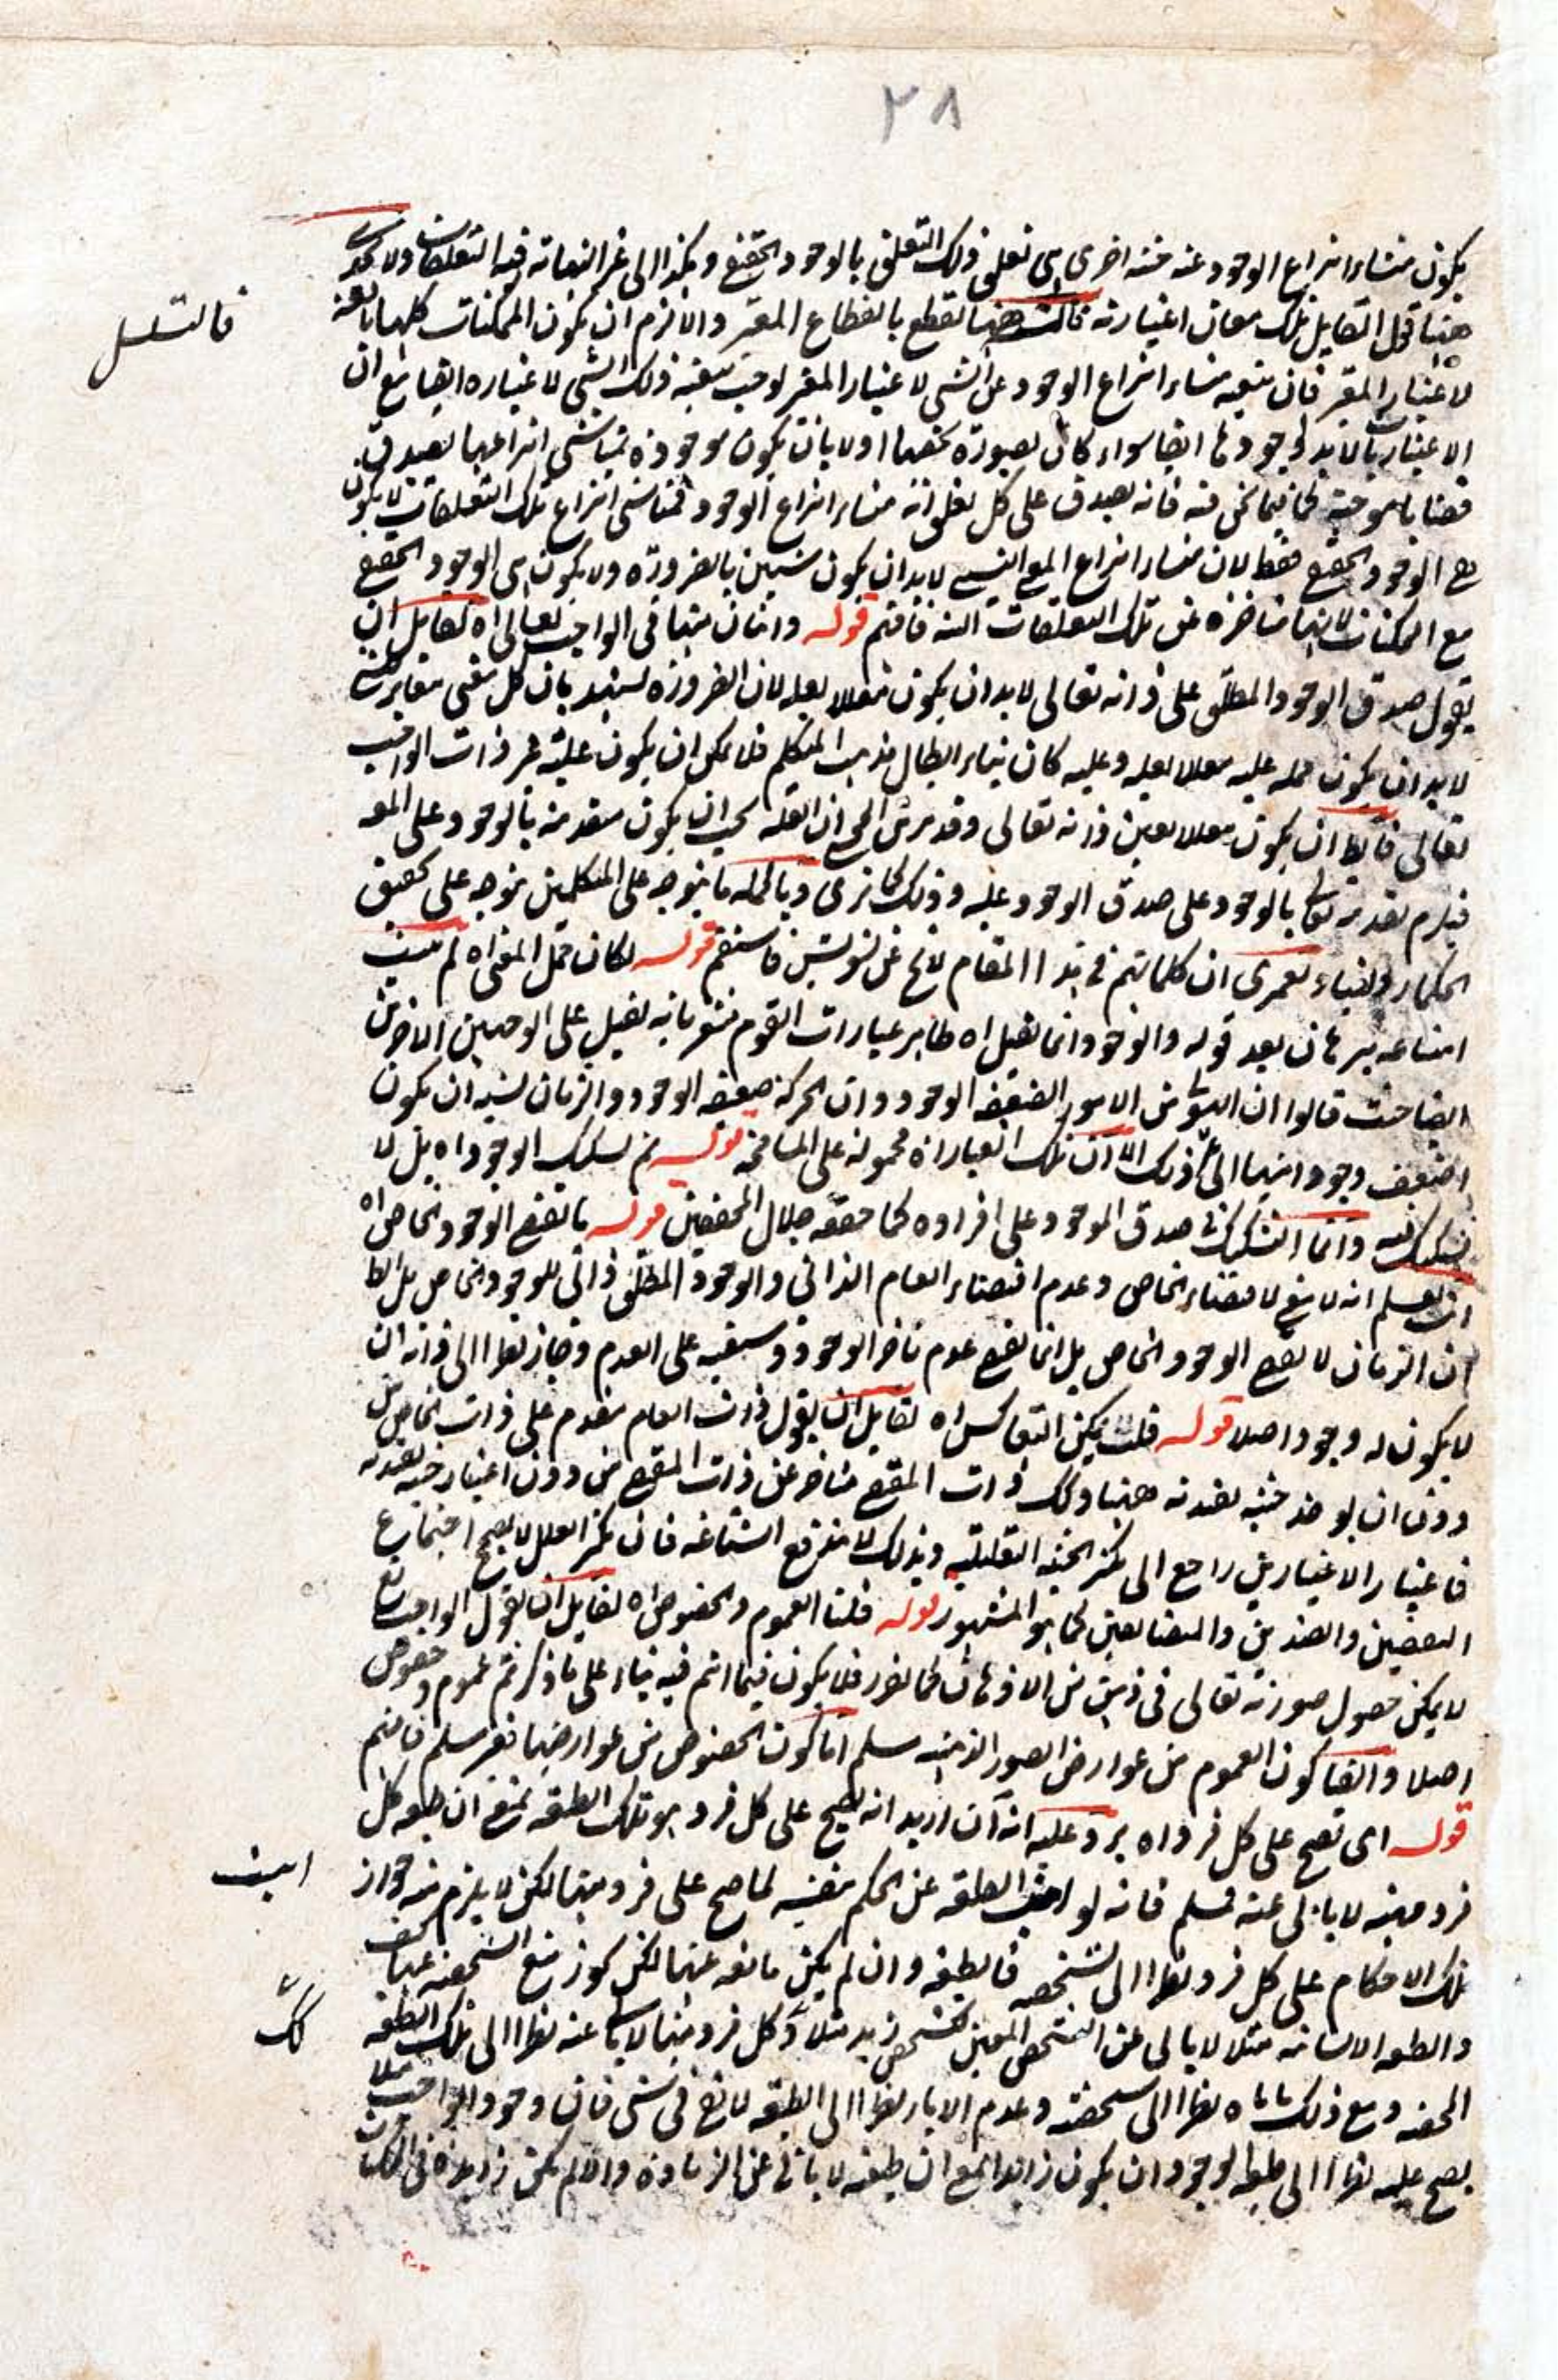 ٢٨
يكون منشاء انتزاع الوجود عنه حيثية اخرى اى تعلق ذلك التعلق بالوجود الحقيقى وهكذا الى غير النهاية فيه التعلقات ولا
ههنا قول القايل تلك معان اعتبارية فالتسلسل ههنا ينقطع بانقطاع المعتبر والا لزم ان يكون الممكنات كلها تابعة
فالتسلسل
لاعتبار المعتبر فان تبعية منشاء انتزاع الوجود عن الشى لاعتبار المعتبر لوجب تبعية ذلك الشى لاعتباره ايضا مع ان
الاعتباريات لابد لوجودها ايضا سواء كان بصورة تخصها اولا بان يكون موجودة بمناشى انتزاعها بصدق
قضايا موجبة كما فيما نحن فيه فانه يصدق على كل تعلق انه منشاء انتزاع الوجود فمناشى انتزاع تلك التعلقات لا يكون
هى الوجود الحقيقى فقط لان منشاء انتزاع المعنى النسبى لابد ان يكون شيئين بالضرورة ولا يكون هى الوجود الحقيقى
مع الممكنات لانها متاخرة عن تلك التعلقات البتة فافهم قوله واثنان منها فى الواجب تعالى اه لقايل ان
يقول صدق الوجود المطلق على ذاته تعالى لابد ان يكون معللا بعلة لان الضرورة تشهد بان كل معنى مغاير
لابد ان يكون حمله عليه معللا بعلة وعليه كان بناء ابطال مذهب المتكلم فلا يمكن ان يكون علته غير ذات الواجب
تعالى فايضا ان يكون معللا بعين ذاته تعالى وقد مر ان العلة يجب ان يكون متقدمة بالوجود على المعه
فيلزم تقدمه تعالى بالوجود على صدق الوجود عليه وذلك كما ترى وبالجملة ما يتوجه على المتكلمين يتوجه على تحقيق
الحكماء ولعمرى ان كلماتهم فى هذا المقام لا يخ عن تشويش فاستقم قوله لكان حمل المعنى اه لم يثبت
امتناعه ببرهان بعد قوله والوجود انما يقبل اه ظاهر عبارات القوم مشعر بانه يقبل على الوجهين الاخرين
ايضا حيث قالوا ان الهيولى من الامور الضعيفة الوجود وان الحركة ضعيفة الوجود والزمان يشبه ان يكون
اضعف وجودا منها الى غير ذلك الا ان تلك العبارات محمولة على المسامحة قوله ثم تشكيك الوجود اه بل لا
تشكيك فيه وانما التشكيك صدق الموجود على افراده كما حققه جلال المحققين قوله ما يقتضى الوجود الخاص اه
ان تعلم انه لا ينع لاقتضاء الخاص وعدم اقتضاء العام الذاتى والوجود المطلق ذاتى للوجود الخاص بل الظ
ان الزمان لا يقتضى الوجود الخاص بل انما يقتضى عدم تاخر الوجود وسبقه على العدم وجاز نظرا الى ذاته ان
لا يكون له وجود اصلا قوله قلت يمكن التعاكس اه لقايل ان يقول ذات العام مقدم على ذات الخاص من
دون ان يوخذ حيثية تقدمه ههنا وكك ذات المقتضى متاخر عن ذات المقتضى من دون اعتبار حيثية تقدمه
فاعتبار الاعتبارين راجع الى تكثر الحيثية التعليلية وبذلك لا يرتفع الشناعة فان تكثر العلل لا يصحح اجتماع
النقيضين والضدين والمتضايفين كما هو المشهور قوله قلنا العموم والخصوص اه لقايل ان يقول الواجب تع
لا يمكن حصول صورته تعالى فى ذهن من الاذهان كما تقرر فلا يكون فيما انتم فيه بناء على ما ذكرتم عموم وخصوص
اصلا وايضا كون العموم من عوارض الصور الذهنية مسلم اما كون الخصوص من عوارضها فغير مسلم فافهم
قوله اى تصح على كل فرد اه يرد عليه انه ان اريد انه يصح على كل فرد هو تلك الطبيعة بمعنى ان طبيعة كل
فرد معينة لا يابى عنه فمسلم فانه لو ابت الطبيعة عن الحكم بنفسه لما صح على فرد منها لكن لا يلزم منه جواز
ابيت
تلك الاحكام على كل فرد نظرا الى تشخصه فالطبيعة وان لم يكن مانعة عنها لكن يجوز منع الشخصية عنها كيف
والطبيعة الانسانية مثلا لا يابى عن التشخص المعين كتشخص زيد مثلا وكل فرد منها لا يابى عنه نظرا الى تلك الطبيعة
كك
المحضة ومع ذلك ياباه نظرا الى شخصيته وعدم الاباء نظرا الى الطبيعة لا ينفع فى شى فان وجود الواجب مثلا
يصح عليه نظرا الى طبيعة الوجود ان يكون زايدا بمعنى ان طبيعته لا يابى عن الزيادة والا لم يكن زايدة فى الممكنات